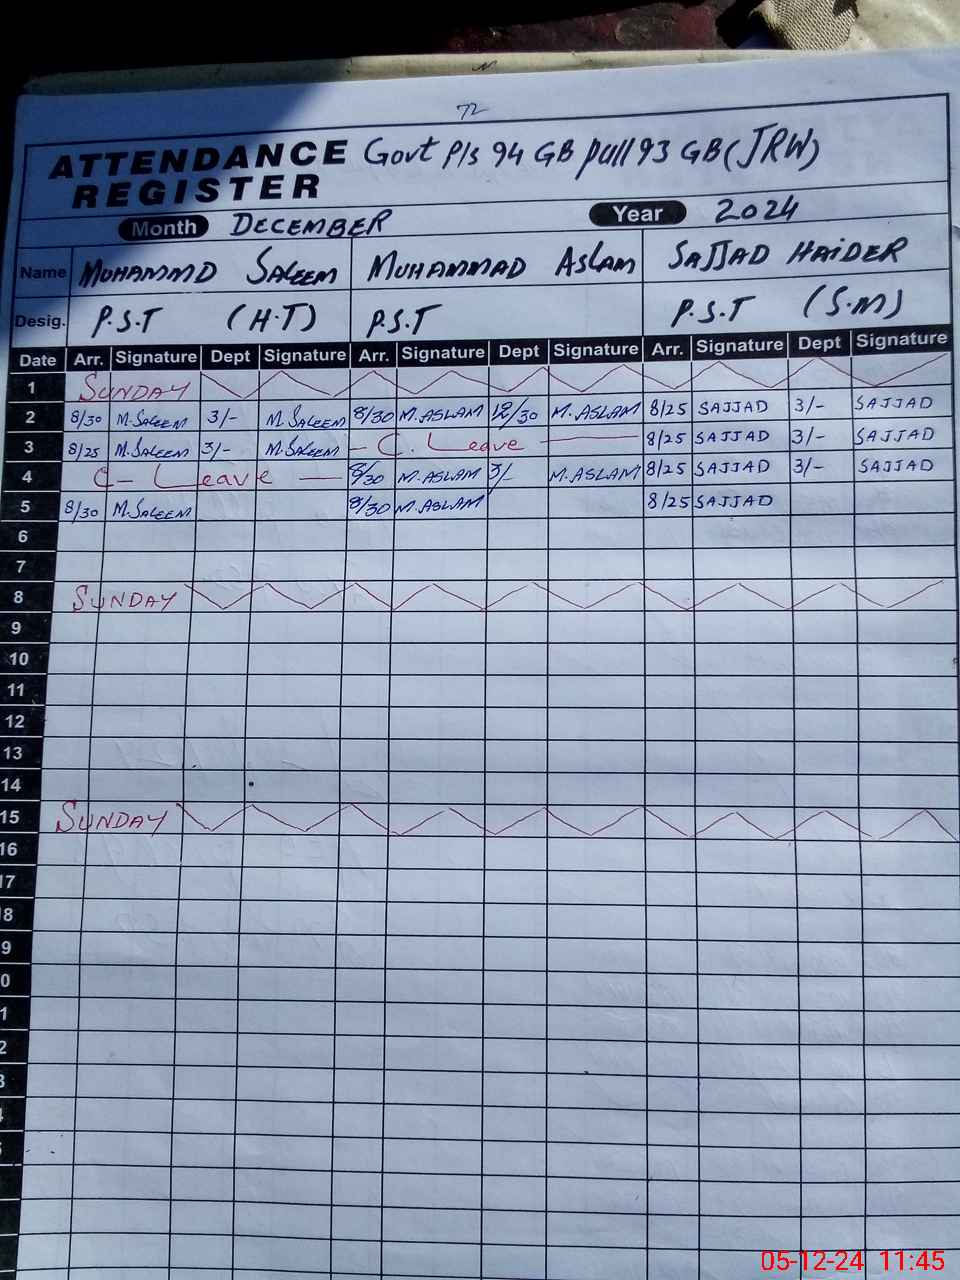 72
ATTENDANCE REGISTER Govt P/s 94 GB pull 93 GB (JRW)
Month DECEMBER Year 2024
Name MUHAMMD SALEEM MUHAMMAD ASLAM SAJJAD HAIDER
Desig. P.S.T (H.T) P.S.T P.S.T (S.M)
Date Arr. Signature Dept Signature Arr. Signature Dept Signature Arr. Signature Dept Signature
1 SUNDAY
2 8/30 M.SALEEM 3/- M.SALEEM 8/30 M.ASLAM /30 M.ASLAM 8/25 SAJJAD 3/- SAJJAD
3 8/25 M.SALEEM 3/- M.SALEEM - C. Leave 8/25 SAJJAD 3/- SAJJAD
4 C- Leave 8/30 M.ASLAM 3/- M.ASLAM 8/25 SAJJAD 3/- SAJJAD
5 8/30 M.SALEEM 8/30 M.ASLAM 8/25 SAJJAD
6
7
8 SUNDAY
9
10
11
12
13
14
15 SUNDAY
16
17
8
9
0
1
2
3
05-12-24 11:45